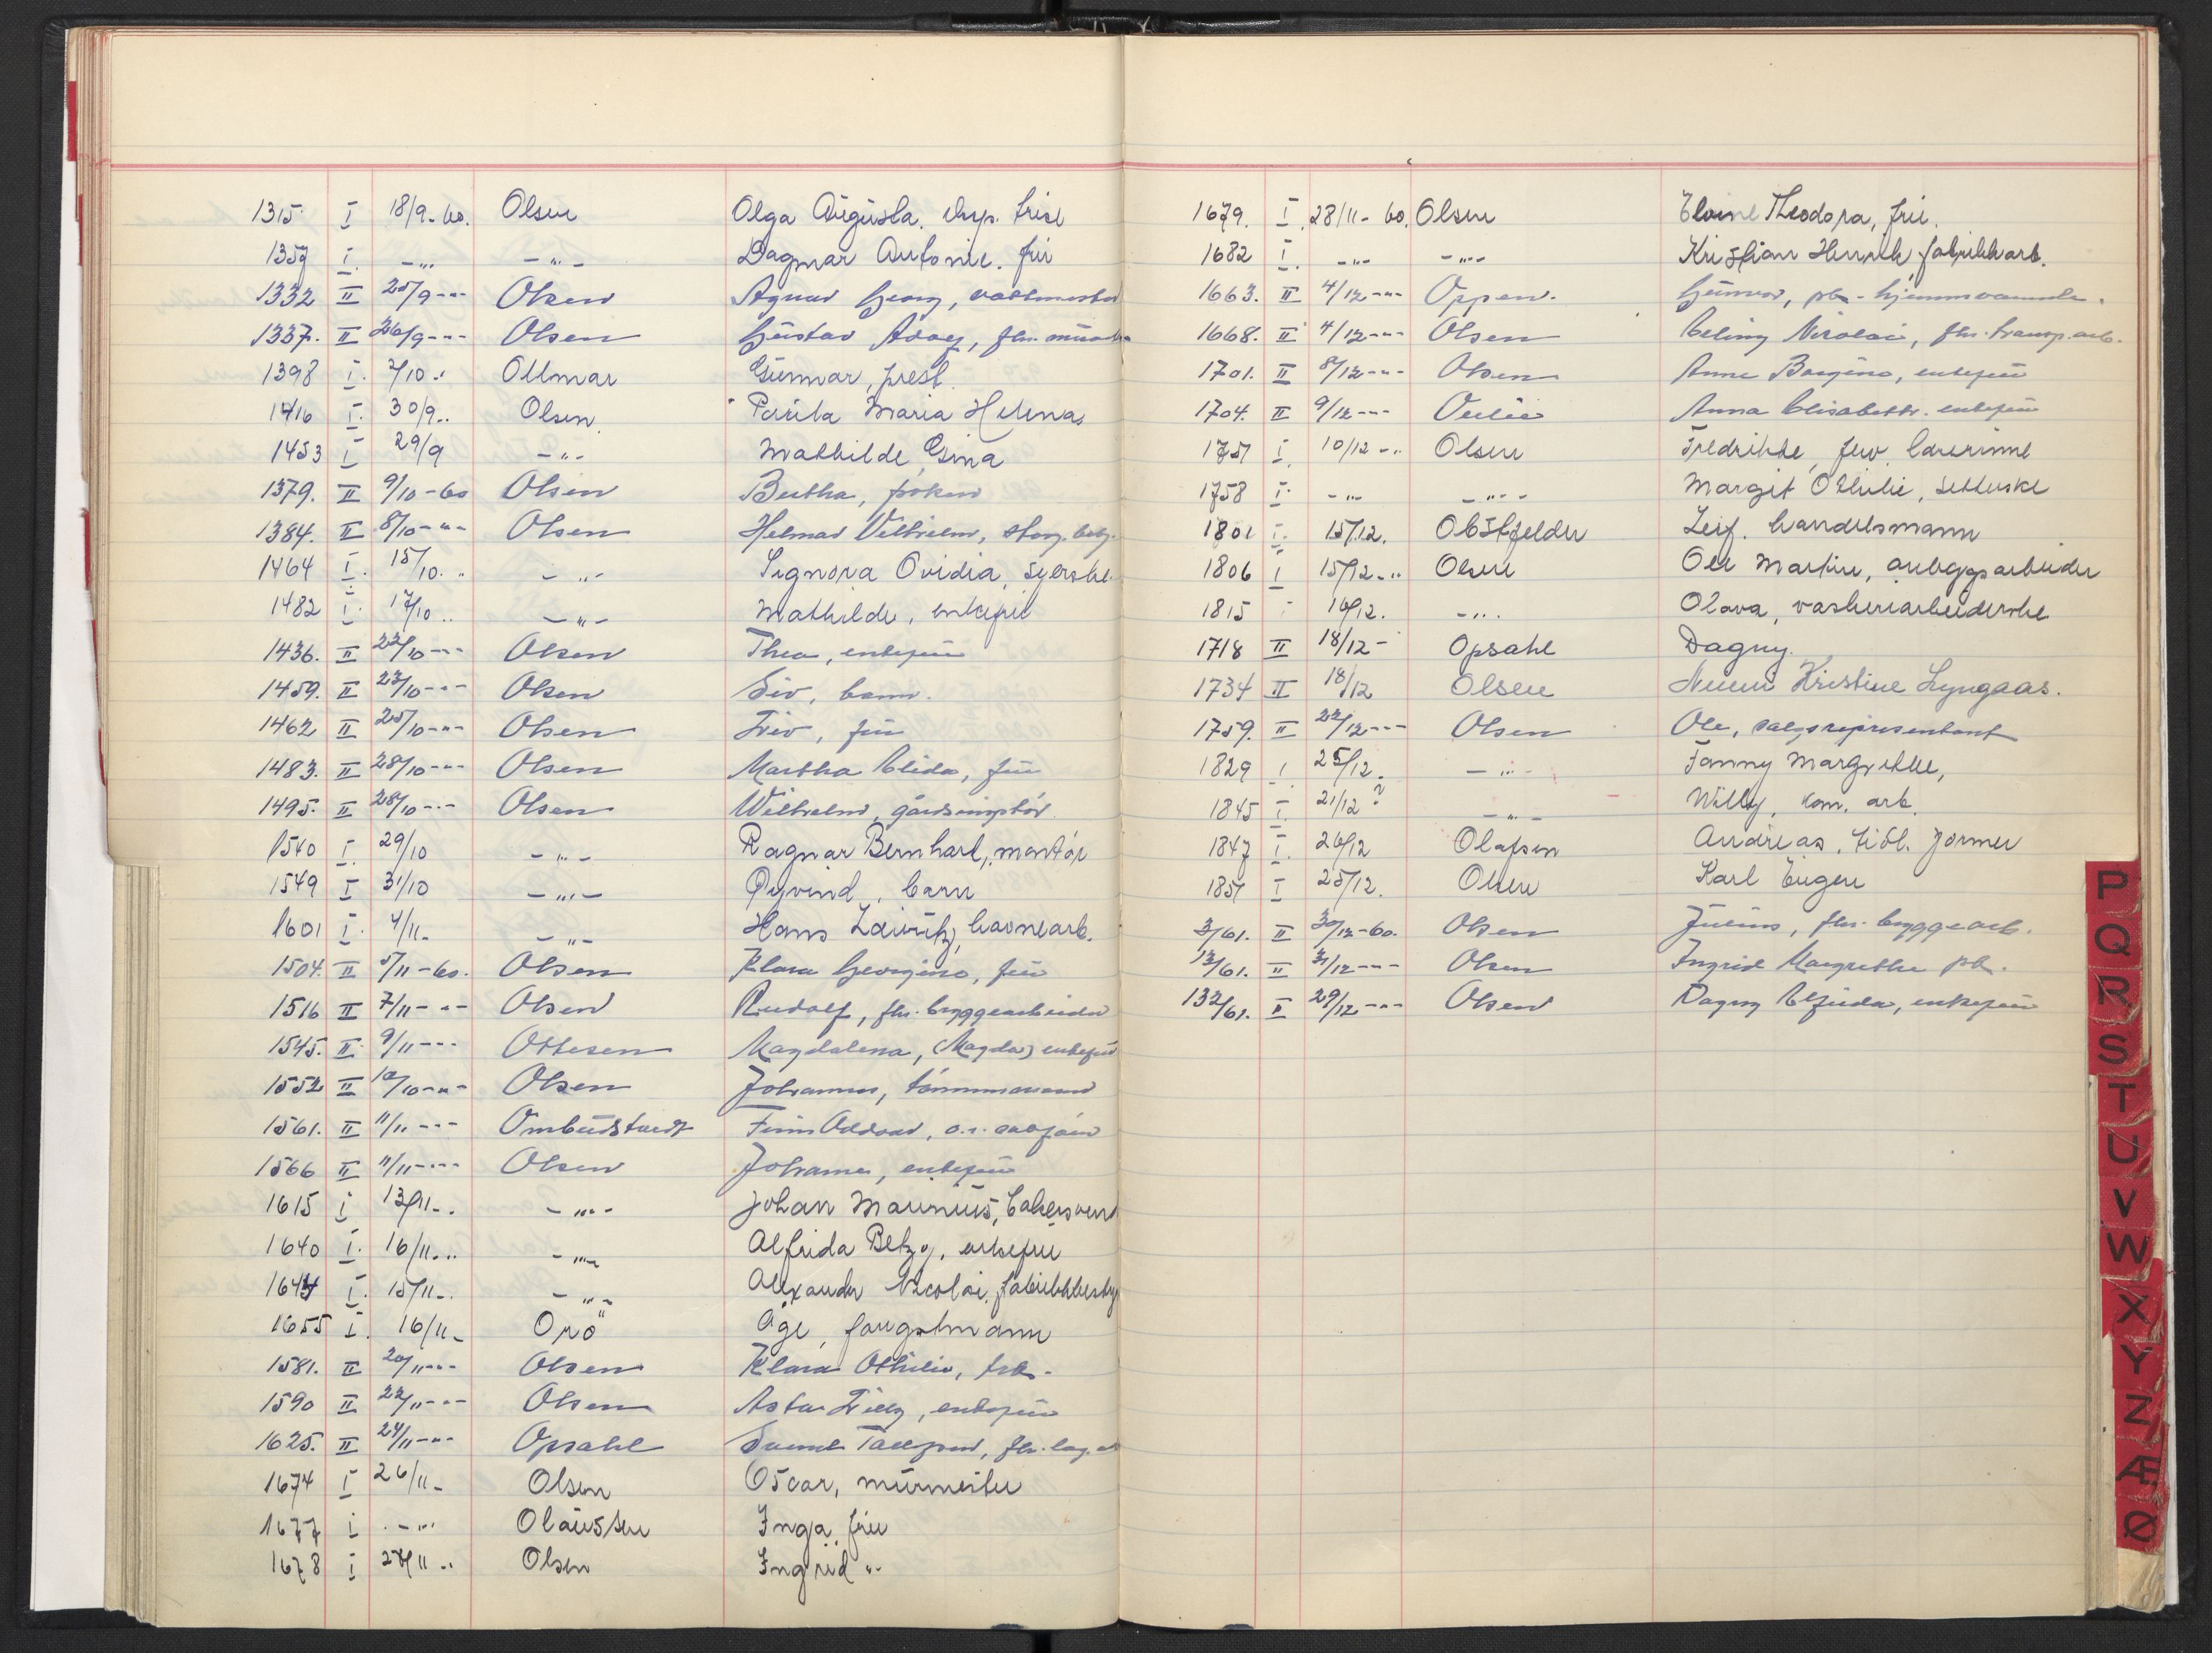 1315 I 18/9-60. Olsen Olga Augusta.
1359 I. -"- -"- Dagmar Antonie. fru
1332 II 25/9-"- Olsen Agnar Georg, vaktmester
1337. II 26/9-"- Olsen Gustav Adolf, fhv. murer
1398 I. 2/10." Ollmar Gunnar, prest.
1416 I. 30/9.. Olsen Paula Maria Helena
1453 I 29/9 -"- Mathilde Gina
1379. II 9/10-60 Olsen Bertha, frøken
1384. II 8/10-"- Olsen Helmar Vilhelm,
1464 I. 15/10.." -"- Signora Ovidia, syerske.
1482 I. 17/10.. -"- Mathilde, enkefru
1436. II 22/10-"- Olsen Thea, enkefru
1459. II 23/10-"- Olsen Siv, barn.
1462 II 25/10-"- Olsen fru
1483. II 28/10-"- Olsen Martha Elida, fru
1495. II 28/10-"- Olsen Wilhelm,
1540 I. 29/10 -"- Ragnar Bernhart, montør
1549 I 31/10 -"- Øyvind, barn
1601 I. 4/11- -"- Hans Lauritz, havnearb.
1504. II 5/11-60. Olsen Klara Georgine, fru
1516 II 7/11-"- Olsen Rudolf, fhv. byggearbeider
1545. II 9/11-"- Ottesen Magdalena, (Magda) enkefru
1552 II 10/10-"- Olsen Johannes, tømmermann
1561. II 11/11-"- Ombudstvedt Finn Oddvar,
1566 II 11/11-"- Olsen Johanne, enkefru
1615 I 13/11-. -"- Johan Maurius, bakersvend
1640 I. 16/11-.. -"- Alfrida Betzy, enkefru
1644 I. 15/11-. -"- Alexander Nicolai,
1655 I. 16/11- Orö Åge, fangstmann
1581. II 20/11-"- Olsen Klara Othilie, frk.
1590 II 22/11-"- Olsen Asta enkefru
1625. II 24/11-"- Opsahl
1674 I 26/11- Olsen Oscar, murmester
1677 I -"- Olaussen Inga, fru
1678 I 27/11 -" Olsen Ingrid "-
1679. I. 28/11-60. Olsen Theodora, fru.
1682 I. -"- -"- Kristian Henrik, fabrikkarb.
1663. II 4/12-"- Oppen. Gunvor,
1668. II 4/12-"- Olsen Nicolai, fhv. transp.arb.
1701. II 8/12-"- Olsen Anne enkefru
1704. II 9/12-"- Anna Elisabeth. enkefru
1757 I. 10/12-.. Olsen Fredrikke, fhv. lærerinne
1758 I. -"- -"- Margit Othilie,
1801 I. 15/12. Obstfelder Leif. handelsmann
1806 I 15/12-." Olsen Ole Martin, anleggsarbeider
1815 I 16/12. -"- Olava, vaskeriarbeiderske
1718 II 18/12- Opsahl Dagny.
1734 II 18/12 Olsen Kristine Lyngaas.
1759. II 22/12-"- Olsen Ole, salgsrepresentant
1829 I. 25/12. -"- Fanny Margrethe,
1845 I. 21/12? -"- Willy, kom. arb.
1847 I. 26/12 Olafsen Andreas,
1851 I 25/12. Olsen Karl Eugen
3/61. II 30/12-60. Olsen Julius, fhv. byggearb.
13/61. II 31/12-"- Olsen Ingrid Margrethe
132/61. II 29/12-"- Olsen Dagny Alfrida, enkefru
P
Q
R
S
T
U
V
W
X
Y
Z
Æ
Ø